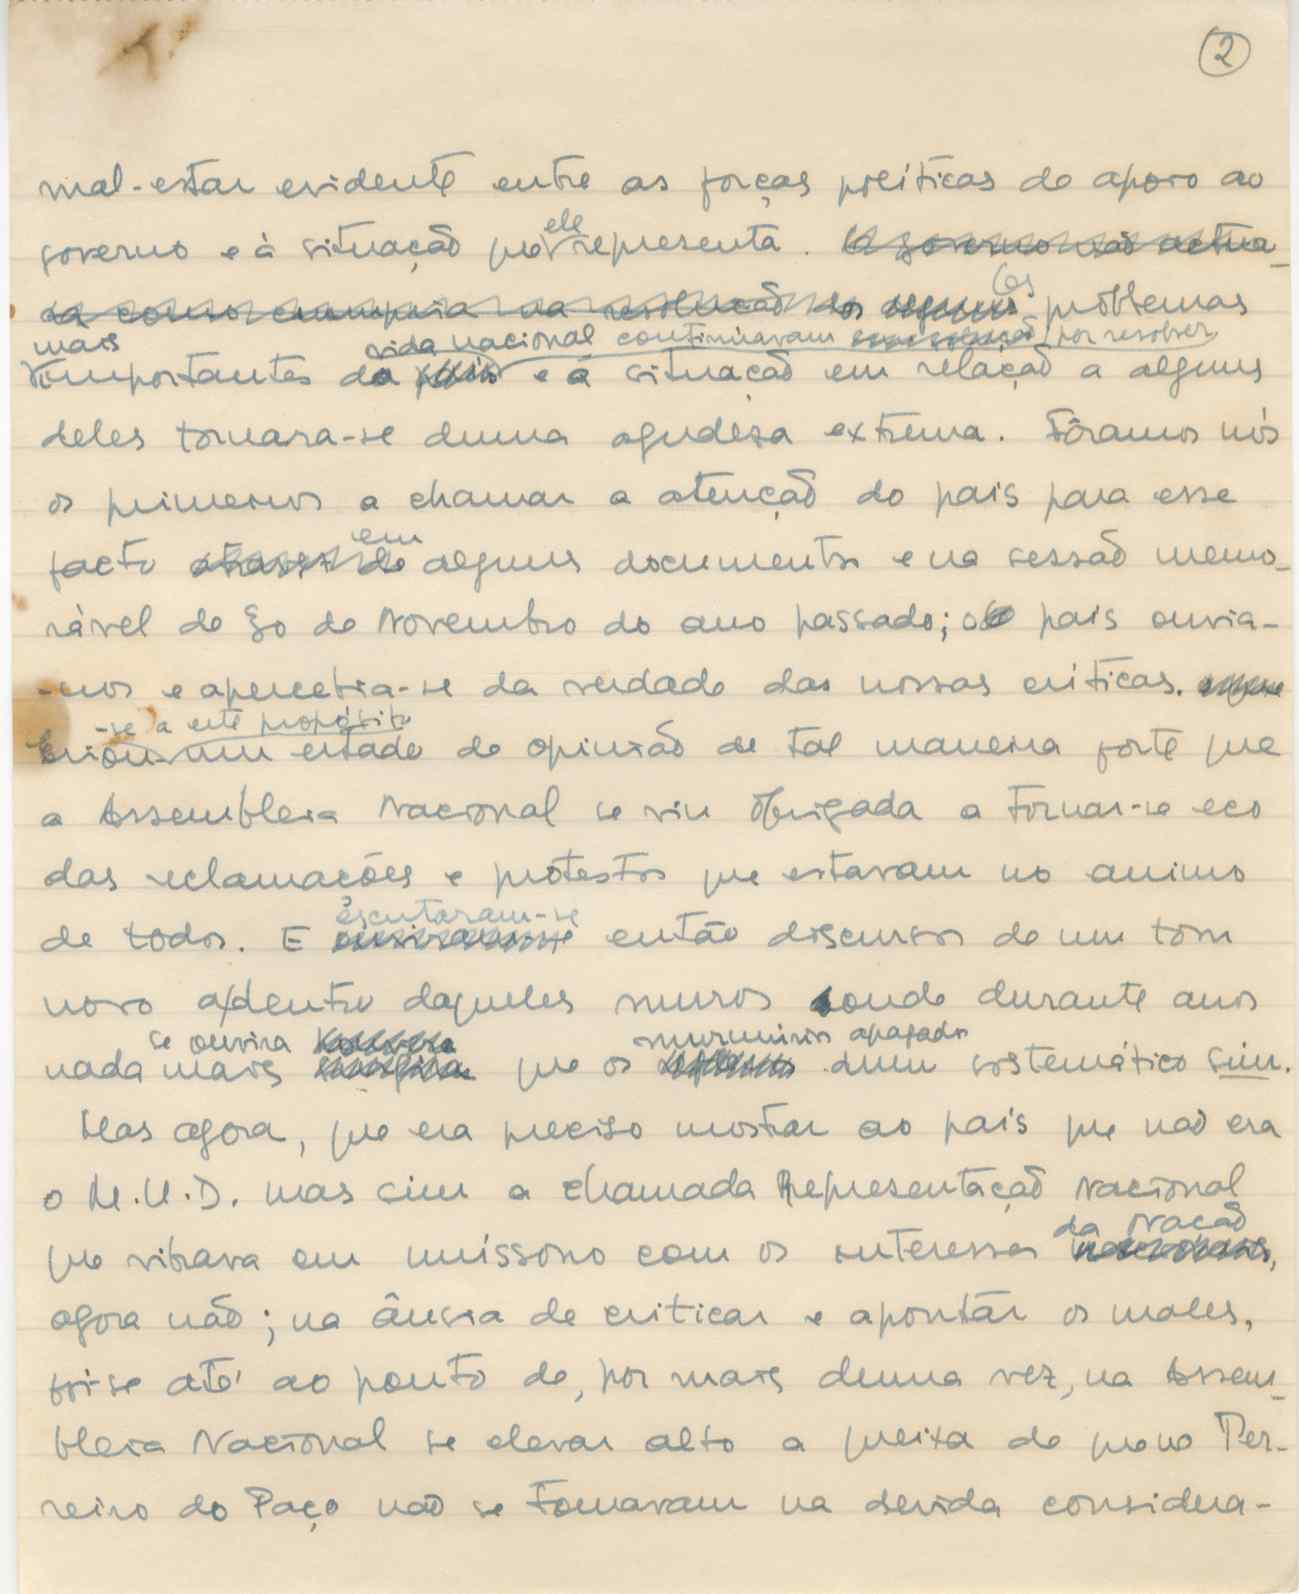 2
mal-estar evidente entre as forças políticas de apoio ao
ele
governo e à situação que representa. O governo não actua-
os
problemas
mais vida nacional continuavam por resolver
importantes da e a situação em relação a alguns
deles tornara-se duma agudeza extrema. Fôramos nós
os primeiros a chamar a atenção do pais para esse
em
facto através de alguns documentos e na sessão memo-
rável de 30 de Novembro do ano passado; o pais ouvia-
-nos e apercebia-se da verdade das nossas criticas.
-se a este propósito
Criou um estado de opinião de tal maneira forte que
a Assembleia Nacional se viu obrigada a tornar-se eco
das reclamações e protestos que estavam no animo
escutaram-se
de todos. E ouviram-se então discursos de um tom
novo dentro daqueles muros onde durante anos
se ouvira murmúrios apagados
nada mais que os dum sistemático sim.
Mas agora, que era preciso mostrar ao país que não era
o M.U.D. mas sim a chamada Representação Nacional
da Nação
que vibrava em uníssono com os interesses nacionais,
agora não; na ânsia de criticar e apontar os males,
foi-se até ao ponto de, por mais duma vez, na Assem-
bleia Nacional se elevar alto a queixa de que no Ter-
reiro do Paço não se tomavam na devida considera-